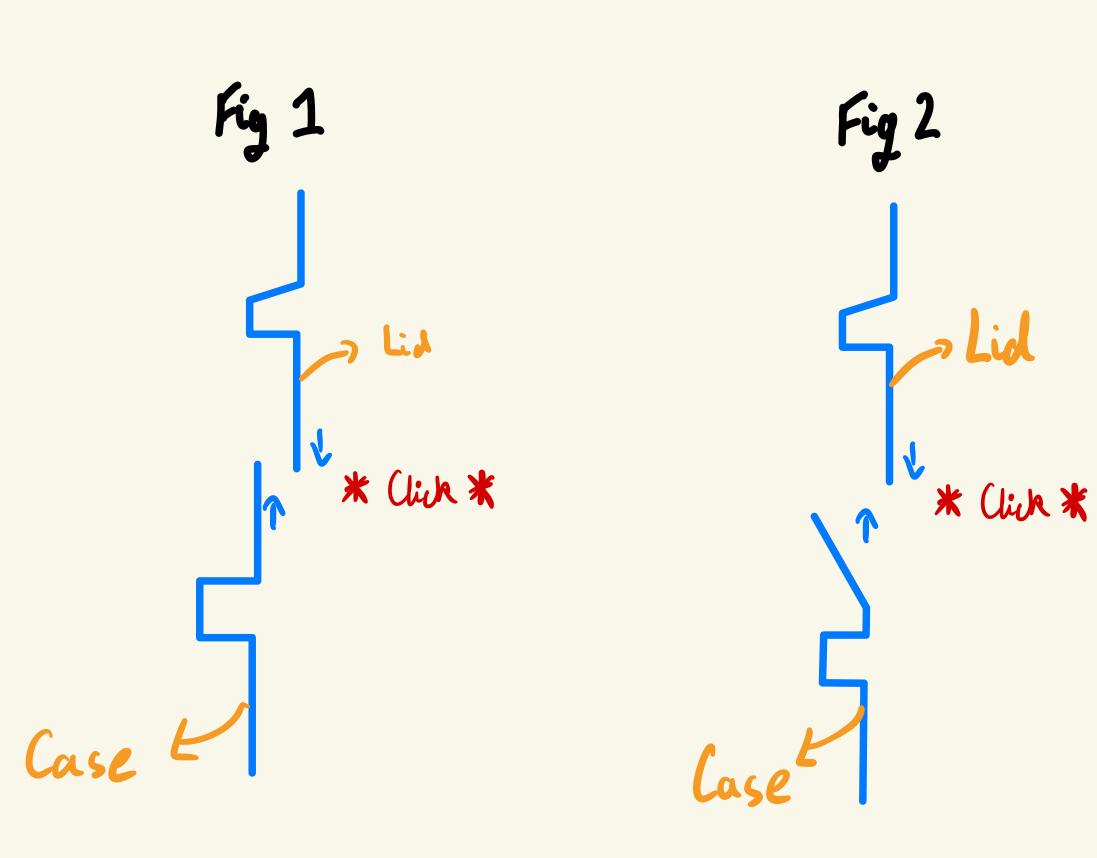 Fig 1
Lid
* Click *
Case
Fig 2
Lid
* Click *
Case